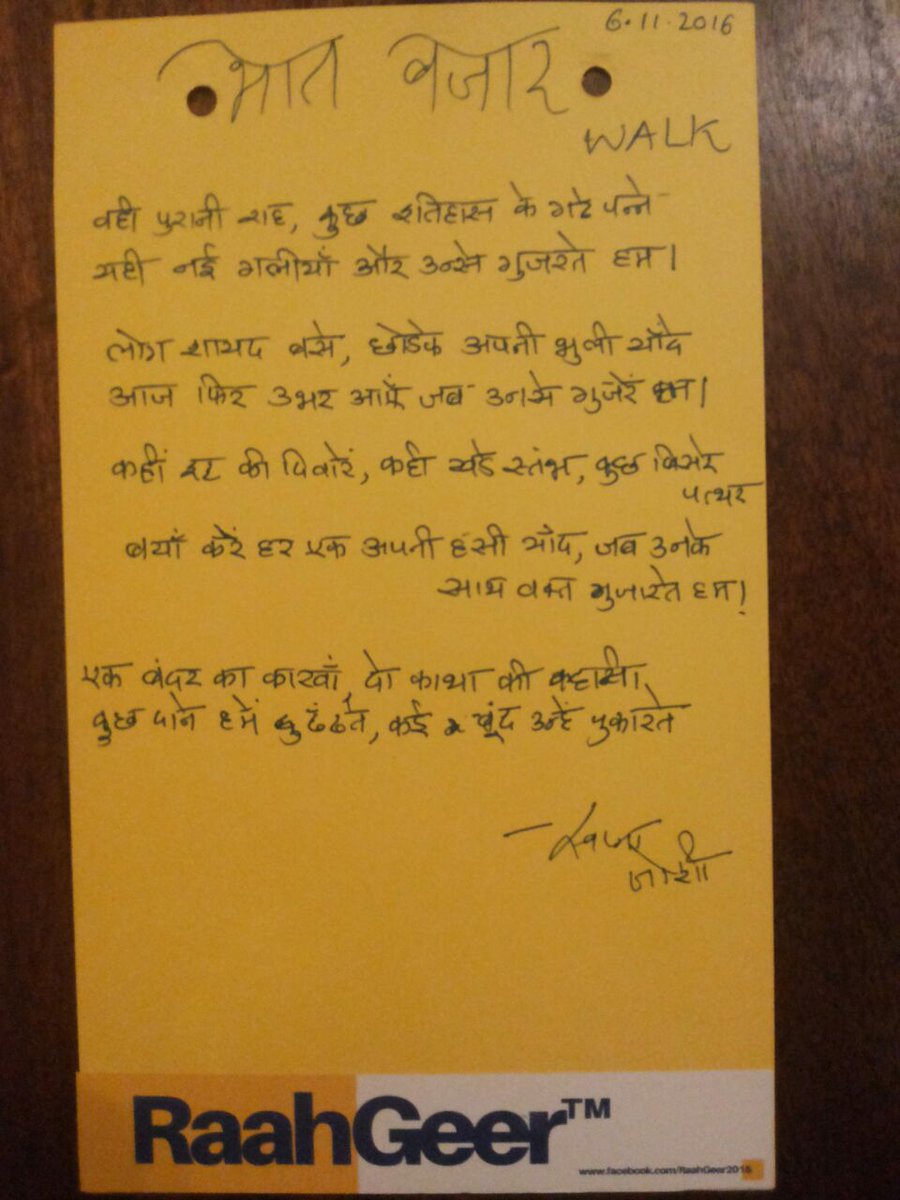 6.11.2016
भात बजार
WALK
वही पुरानी राह, कुछ इतिहास के गटे पन्ने
यही नई गलीयाँ और उन्से गुजरते हम।
लोग शायद बसे, छोडके अपनी भुली यादे
आज फिर उभर आएँ जब उनसे गुजरें हम।
कहीं इट की दिवारें, कही खडे स्तंभ, कुछ बिखरे
पत्थर
बयाँ करें हर एक अपनी हसी याद, जब उनके
साथ वक्त गुजारते हम!
एक बंदर का कारवाँ, दो काथा की कहानी
कुछ दाने हमें ढुंढते, कई बूंद उन्हें पुकारते
जोशी
RaahGeer™
www.facebook.com/RaahGeer2016